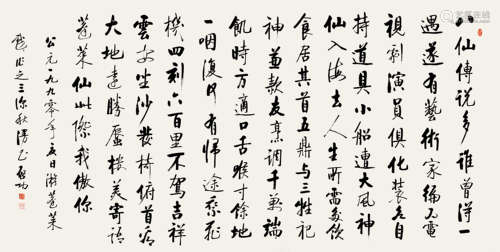 八仙傳說多誰曾得一
遇遂有藝術家編入電
視劇演員俱化裝各自
持道具小船遭大風神
仙入海去人生所需多飲
食居其首五鼎与三牲祀
神兼款友烹調千萬端
飢時方適口舌喉寸餘地
一咽復何有歸途乘飛
機四刻六百里不駕吉祥
雲安坐沙發椅俯首看
大地遠勝蜃樓美寄語
蓬萊仙此際我傲你
公元一九九零年日游蓬萊
戲作之三秋正啟功